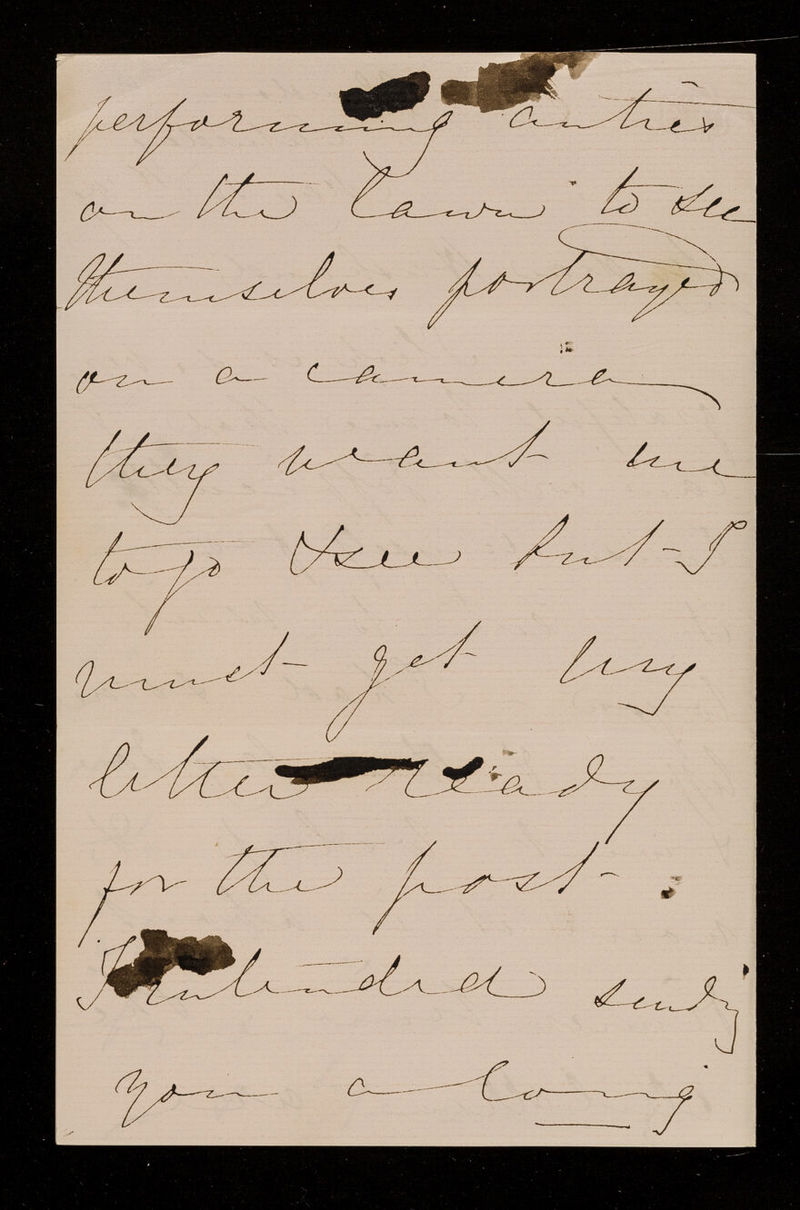 performing antics
on the lawn to see
themselves portrayed
on a camera
they want me
to go & see but I
must get my
letter ready
for the post.
I intended sending
you a long